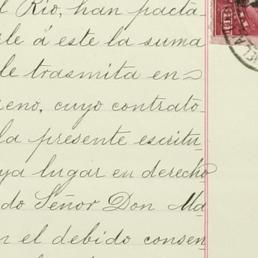 l Rio, han pacta-
rle á este la suma
de trasmita en-
reno, cuyo contrato-
la presente escritu-
ya lugar en derecho
do Señor Don Ma-
n el debido consen-